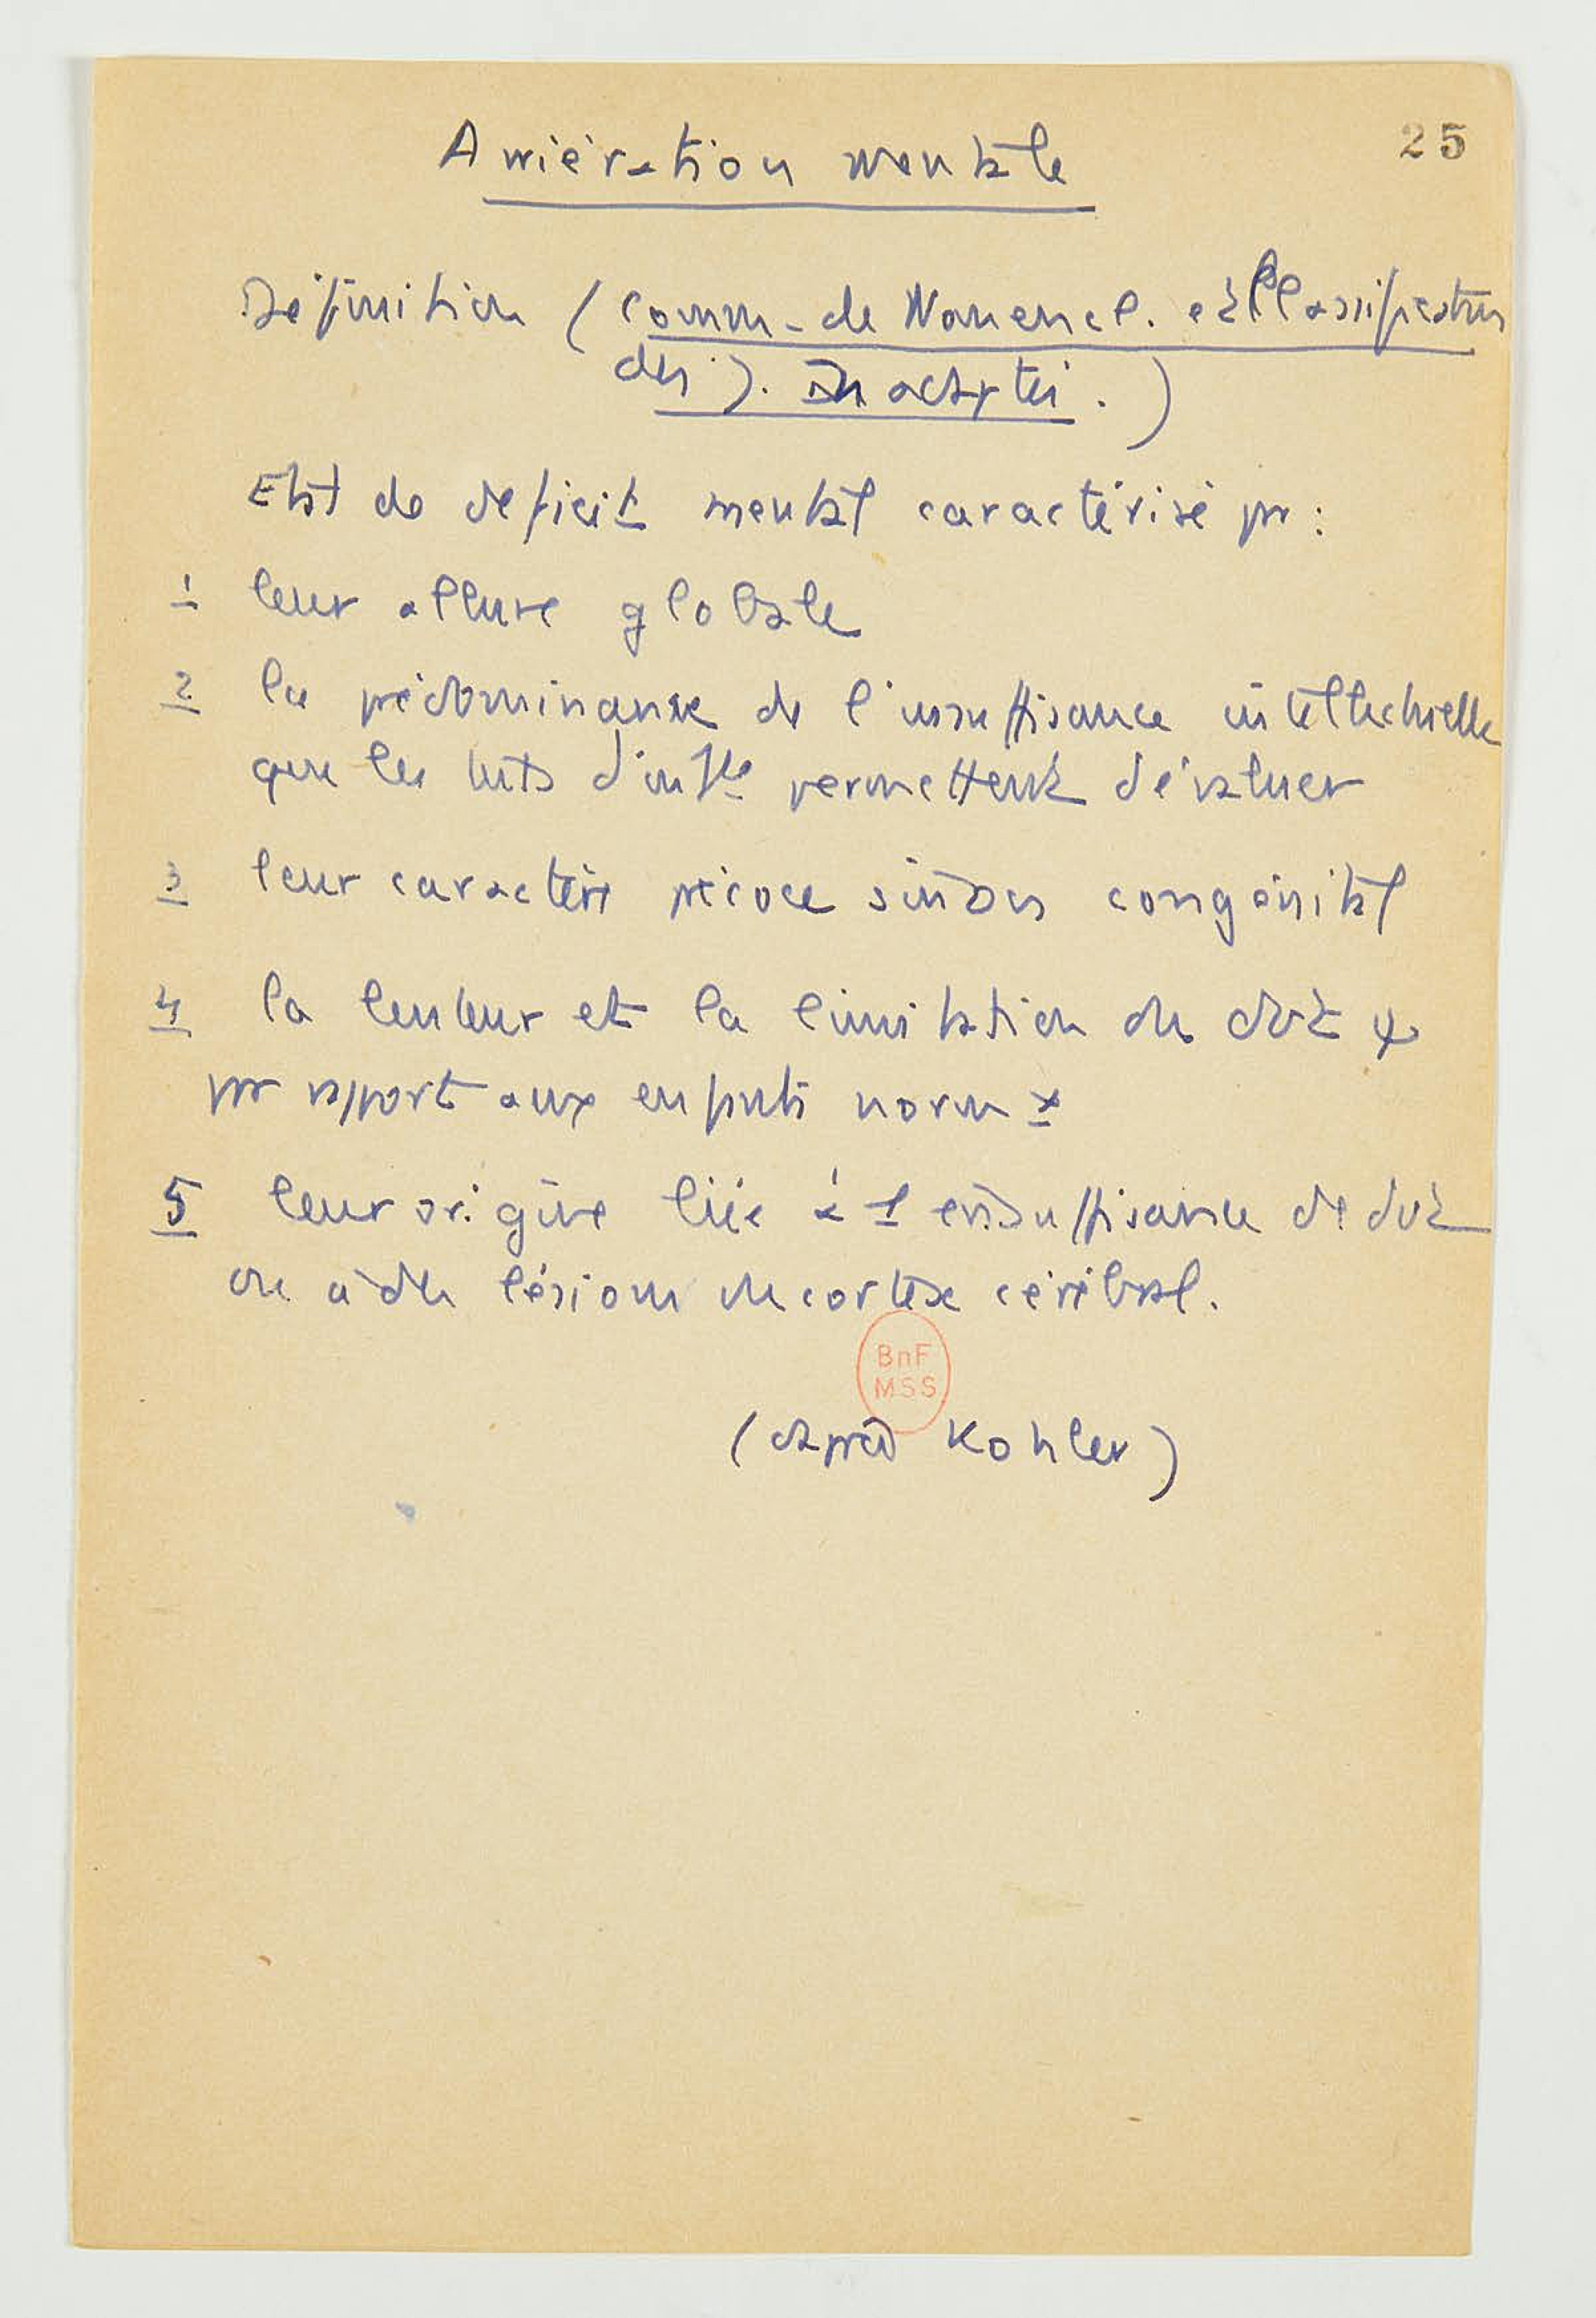 25
Arriération mentale
Définition (Comm. de Nomencl. et Classification
des J. Inadaptés.)
Etat de déficit mental caractérisé pr :
1 leur allure globale
2 la prédominance de l'insuffisance intellectuelle
que les tests d'intce permettent d'évaluer
3 leur caractère précoce sinon congénital
4 la lenteur et la limitation du dvt ψ
pr rapport aux enfants normx
5 leur origine liée à 1 insuffisance de dvt
ou à des lésions du cortex cérébral.
BnF
MSS
(d'après Kohler)